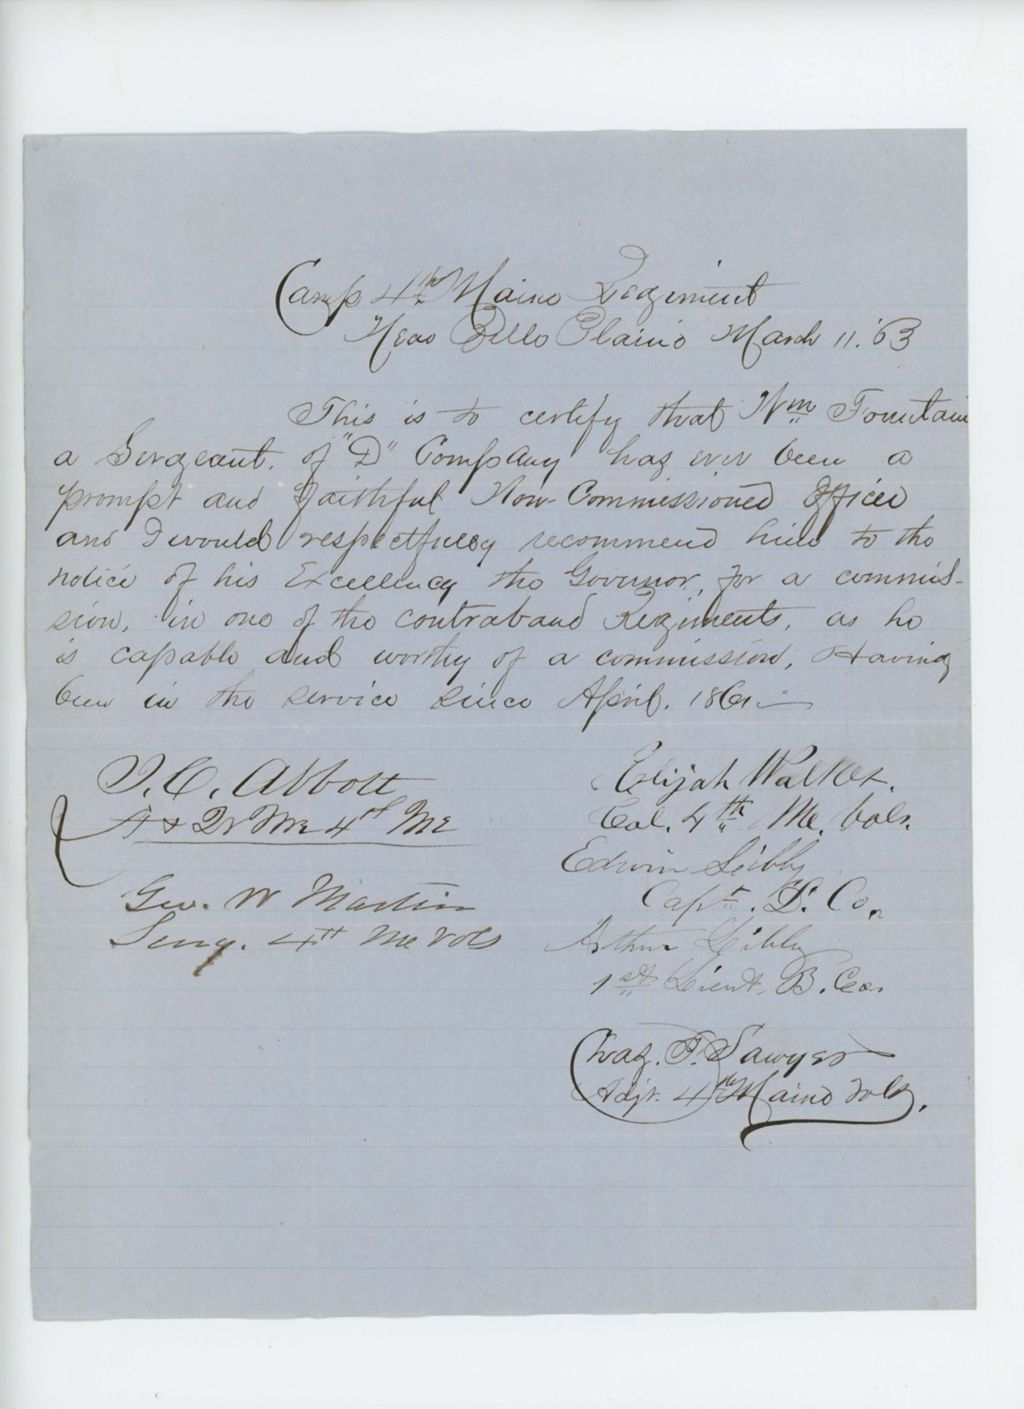 Camp 4th Maine Regiment
Near Belle Plaine March 11. '63
This is to certify that Wm Fountain
a Sergeant. of "D" Company has ever been a
prompt and Faithful Non-Commissioned Officer
and I would respectfully recommend him to the
notice of his Excellency the Governor, for a commis-
sion, in one of the contraband Regiments, as he
is capable and worthy of a commission, Having
been in the service since April. 1861.
I. C. Abbott
4th Me
Geo. W Martin
Surg. 4th Me Vols
Elijah Walker.
Col. 4th Me. Vols.
Edwin Libby
Capt. D. Co.
Arthur Libby
1st Lieut. B. Co.
Chas. F. Sawyer
Adjt. 4th Maine Vols.